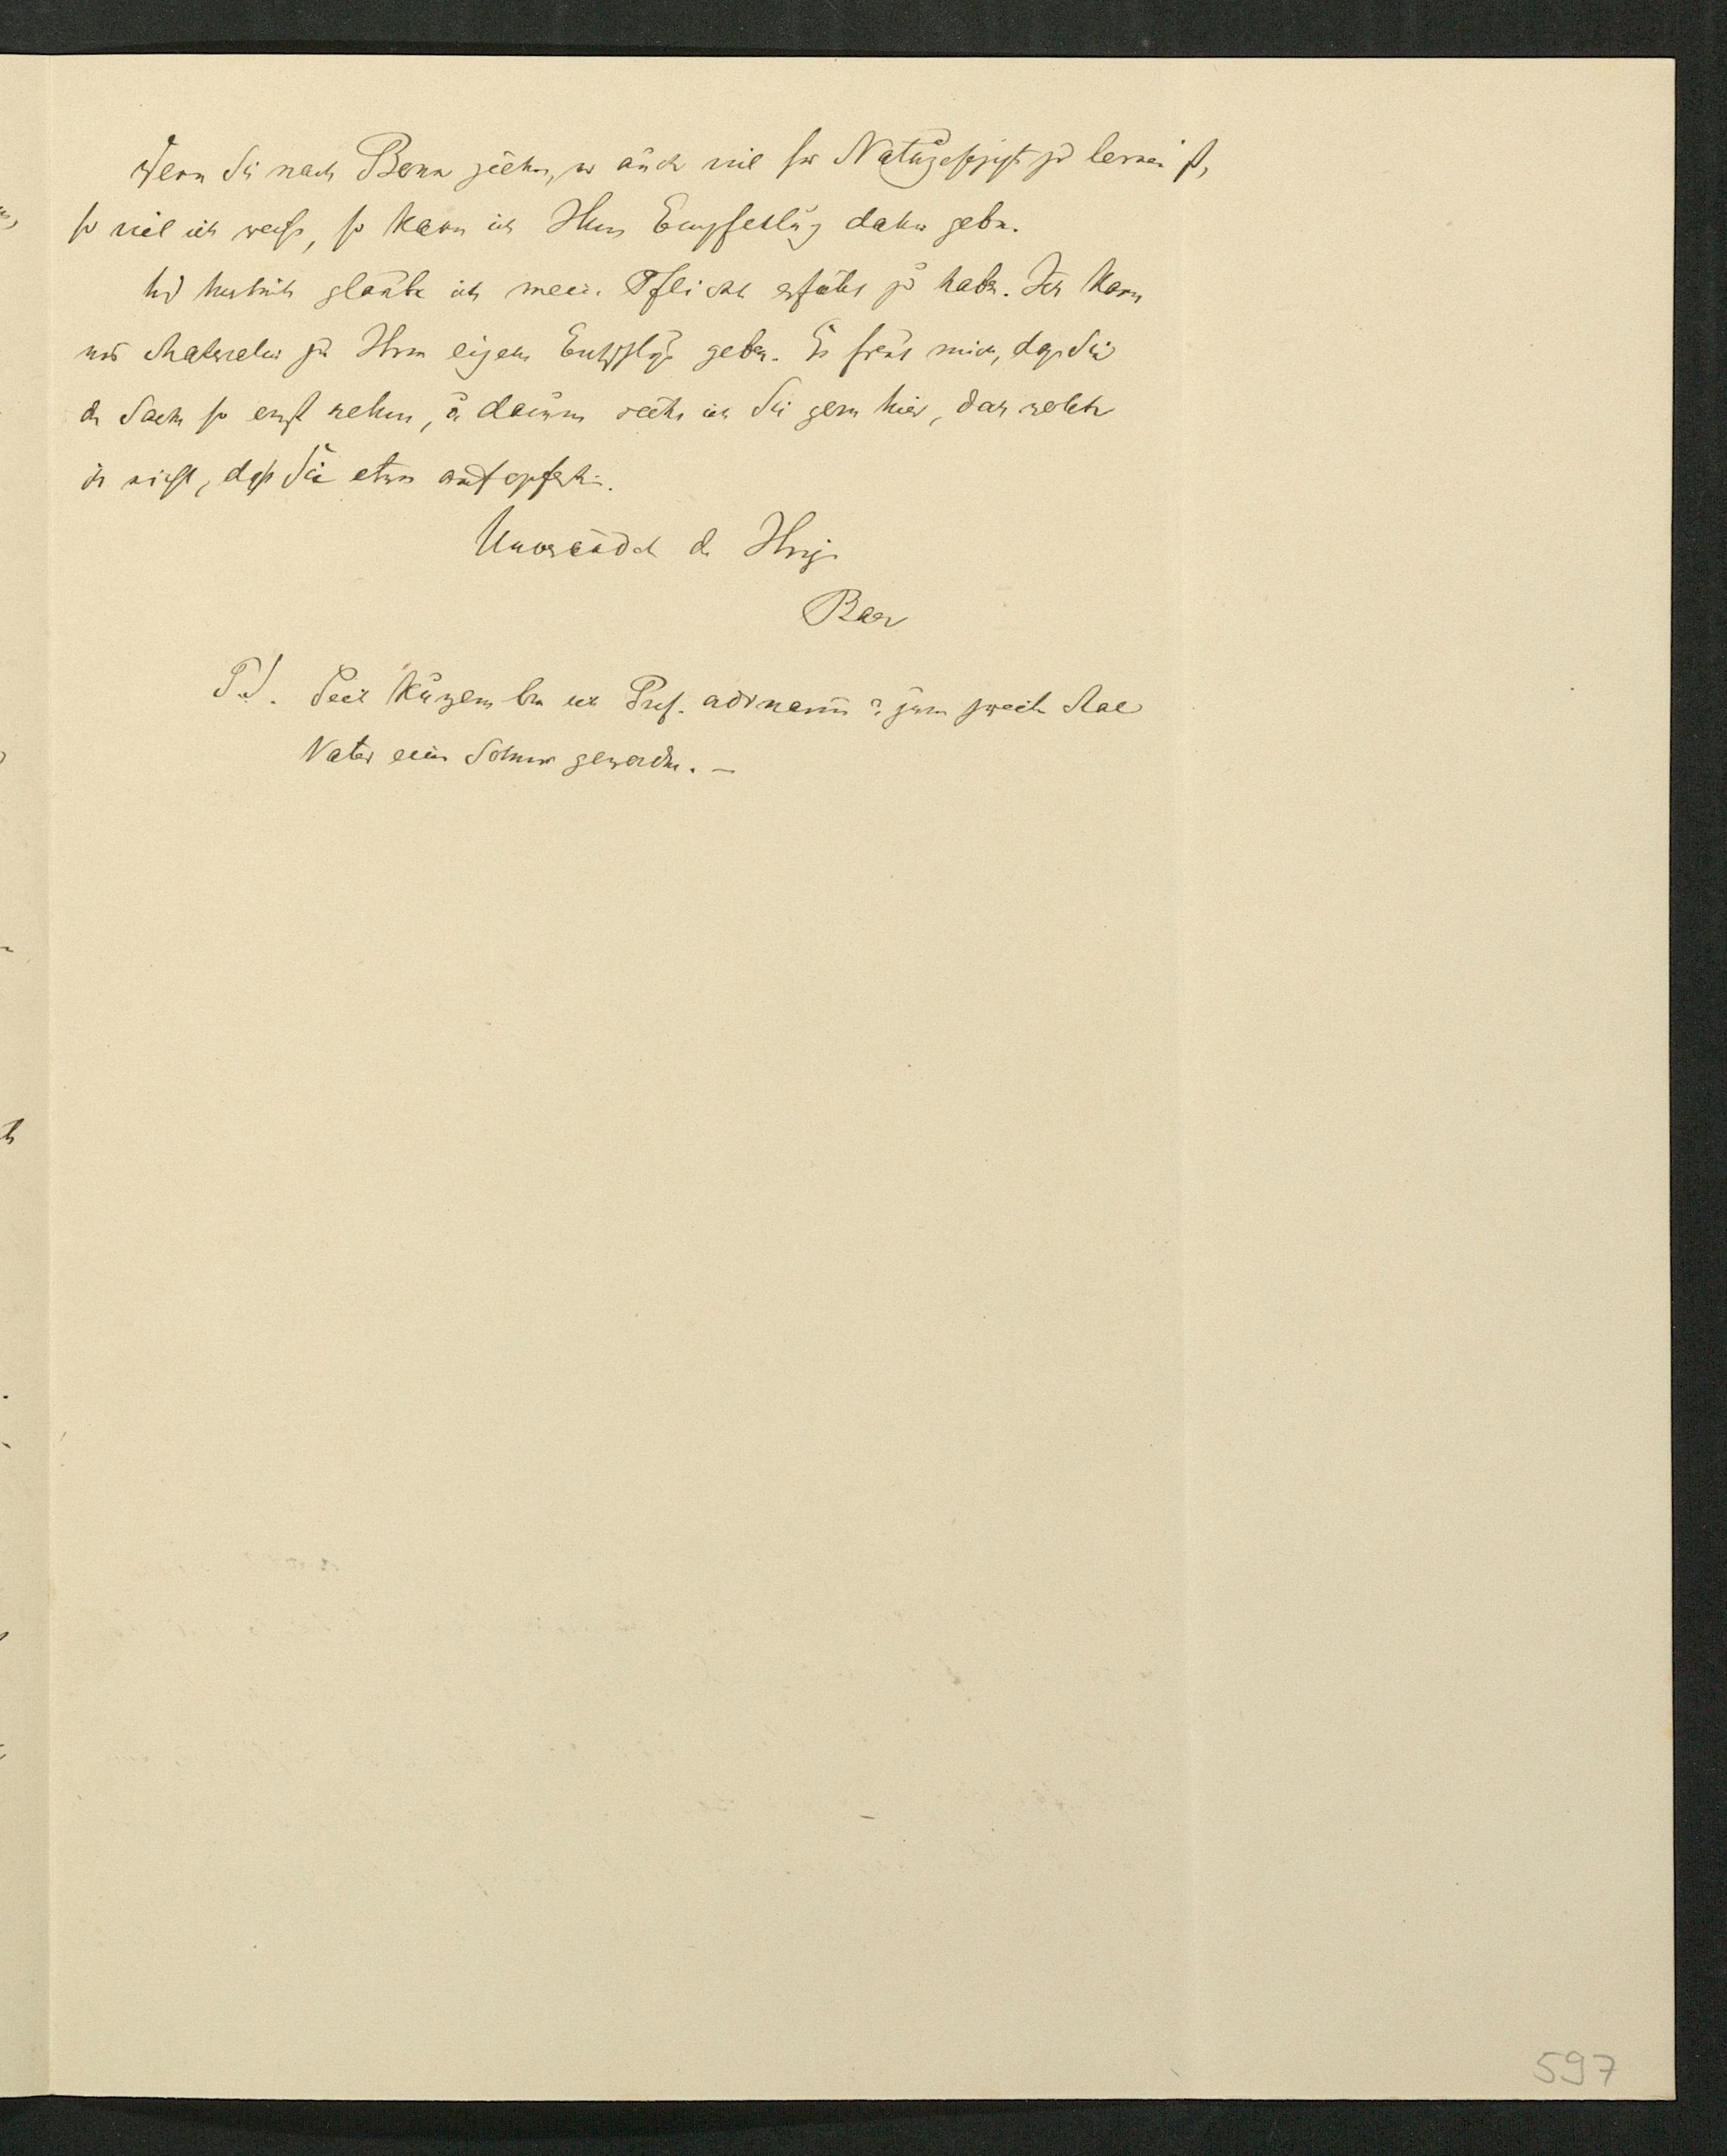 Wenn Sie nach Bonn ziehn, wo auch viel für Naturgeschichte zu lernen ist,
so viel ich weiß, so kann ich Ihnen Empfehlung dahin geben.
Und hiermit glaube ich meine Pflicht erfüllt zu haben. Ich kann
nur Materialien zu Ihrem eigenen Entschluß geben. Es freut mich, daß Sie
die Sache so ernst nehmen, u darum sähe ich Sie gern hier, doch wollte
ich nicht, daß Sie etwas aufopferten.
Unverändert der Ihrige
Baer
P.S. Seit Kurzem bin ich Prof. ordinarius u. zum zweiten Mal
Vater eines Sohnes geworden. –
597